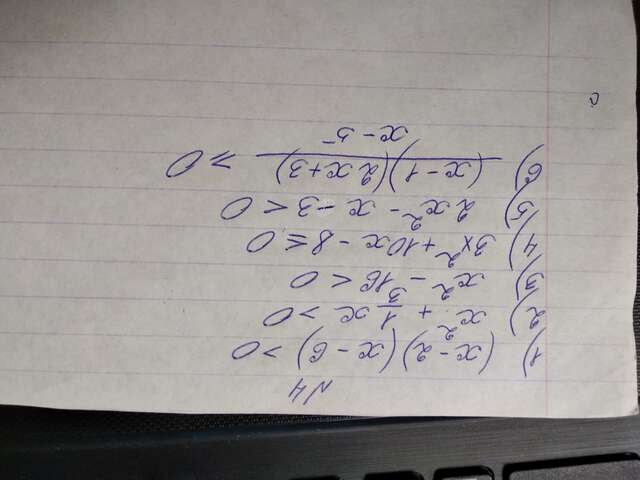 N4
1) (x-2)(x-6) > 0
2) x² + 1/3 x > 0
3) x² - 16 < 0
4) 3x² + 10x - 8 ≤ 0
5) 2x² - x - 3 < 0
6) (x-1)(2x+3)
x-5 ≥ 0